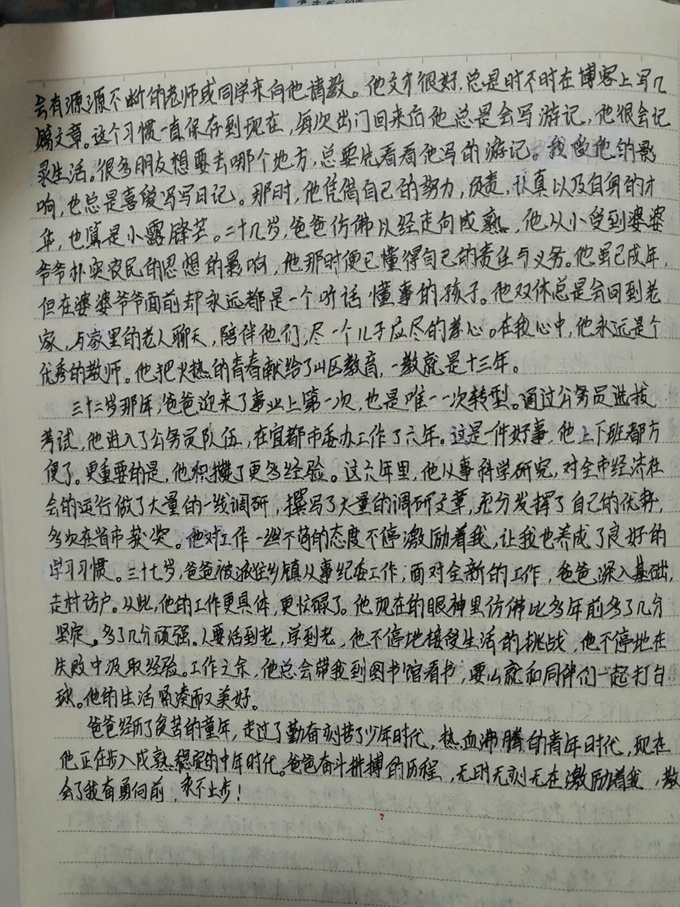 会有源源不断的老师或同学来向他请教。他文才很好,总是时不时在博客上写几
篇文章。这个习惯一直保存到现在,每次出门回来后他总是会写游记,他很会记
录生活。很多朋友想要去哪个地方,总要先看看他写的游记。我受他的影
响,也总是喜爱写写日记。那时,他凭借自己的努力,负责,认真以及自身的才
华,也算是小露锋芒。二十几岁,爸爸仿佛以经走向成熟。他从小受到婆婆
爷爷朴实农民的思想的影响,他那时便已懂得自己的责任与义务。他虽已成年,
但在婆婆爷爷面前却永远都是一个听话懂事的孩子。他双休总是会回到老
家,与家里的老人聊天,陪伴他们,尽一个儿子应尽的孝心。在我心中,他永远是个
优秀的教师。他把火热的青春献给了山区教育,一教就是十三年。
三十三岁那年,爸爸迎来了事业上第一次,也是唯一一次转型。通过公务员选拔
考试,他进入了公务员队伍,在宜都市委办工作了六年。这是一件好事,他上下班都方
便了。更重要的是,他积攒了更多经验。这六年里,他从事科学研究,对全市经济社
会的运行做了大量的一线调研,撰写了大量的调研文章,充分发挥了自己的优势,
多次在省市获奖。他对工作一丝不苟的态度不停激励着我,让我也养成了良好的
学习习惯。三十七岁,爸爸被派往乡镇从事纪委工作,面对全新的工作,爸爸深入基础,
走村访户。从此,他的工作更具体,更忙碌了。他现在的眼神里仿佛比多年前多了几分
坚定。多了几分顽强。人要活到老,学到老,他不停地接受生活的挑战,他不停地在
失败中汲取经验。工作之余,他总会带我到图书馆看书,要么就和同伴们一起打台
球。他的生活节奏而又美好。
爸爸经历了贫苦的童年,走过了勤奋刻苦了少年时代,热血沸腾的青年时代,现在
他正在步入成熟稳定的中年时代。爸爸奋斗拼搏的历程,无时无刻无在激励着我,教
会了我有勇向前,永不止步!